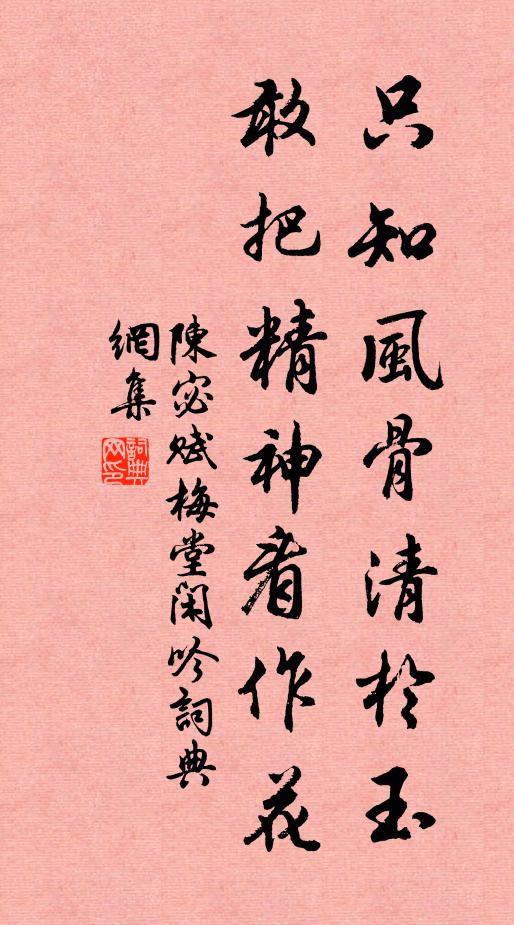 只知風骨清於玉
敢把精神看作花
陳宓賦梅堂閑吟詞典
網集
詞典
网印